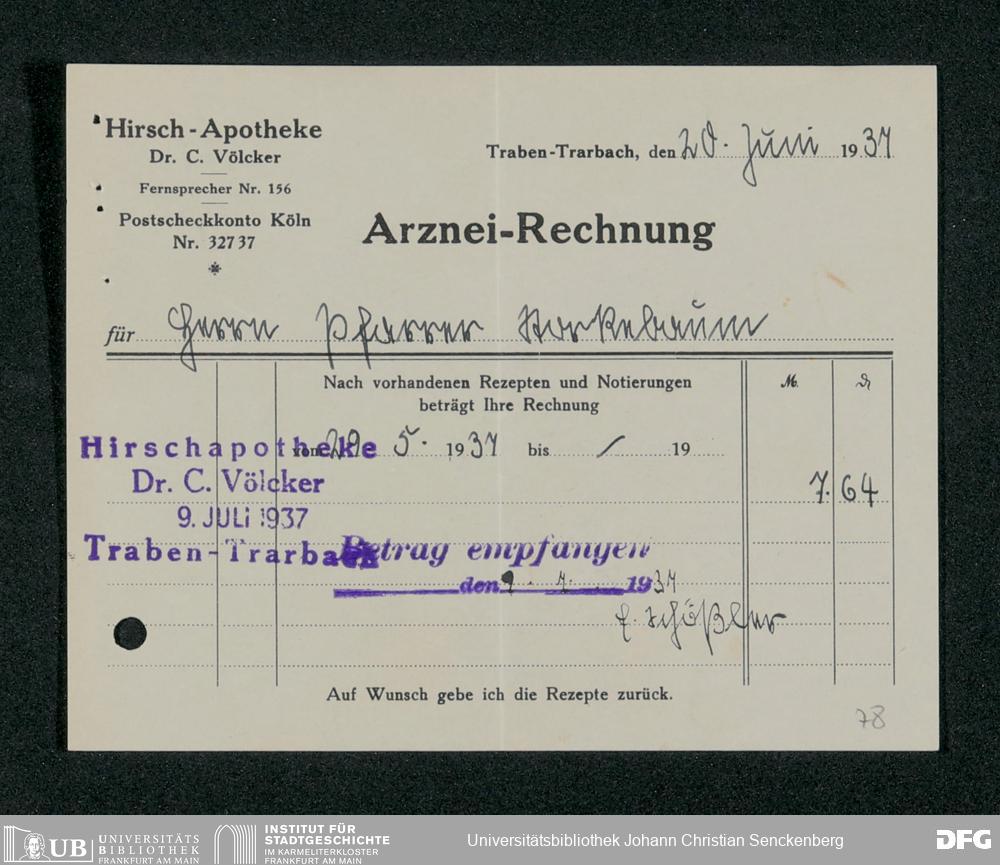 Hirsch-Apotheke
Dr. C. Völcker
Fernsprecher Nr. 156
Postscheckkonto Köln
Nr. 327 37
Traben-Trarbach, den 20. Juni 1937
Arznei-Rechnung
für Herrn Pfarrer Storkebaum
Nach vorhandenen Rezepten und Notierungen
beträgt Ihre Rechnung
M.
vom 29 5. 1937 bis / 19
7.64
Hirschapotheke
Dr. C. Völcker
9. JULI 1937
Traben-Trarbach
Betrag empfangen
den 9. 7. 1937
Auf Wunsch gebe ich die Rezepte zurück.
78
UB UNIVERSITÄTS
BIBLIOTHEK
FRANKFURT AM MAIN
INSTITUT FÜR
STADTGESCHICHTE
IM KARMELITERKLOSTER
FRANKFURT AM MAIN
Universitätsbibliothek Johann Christian Senckenberg
DFG